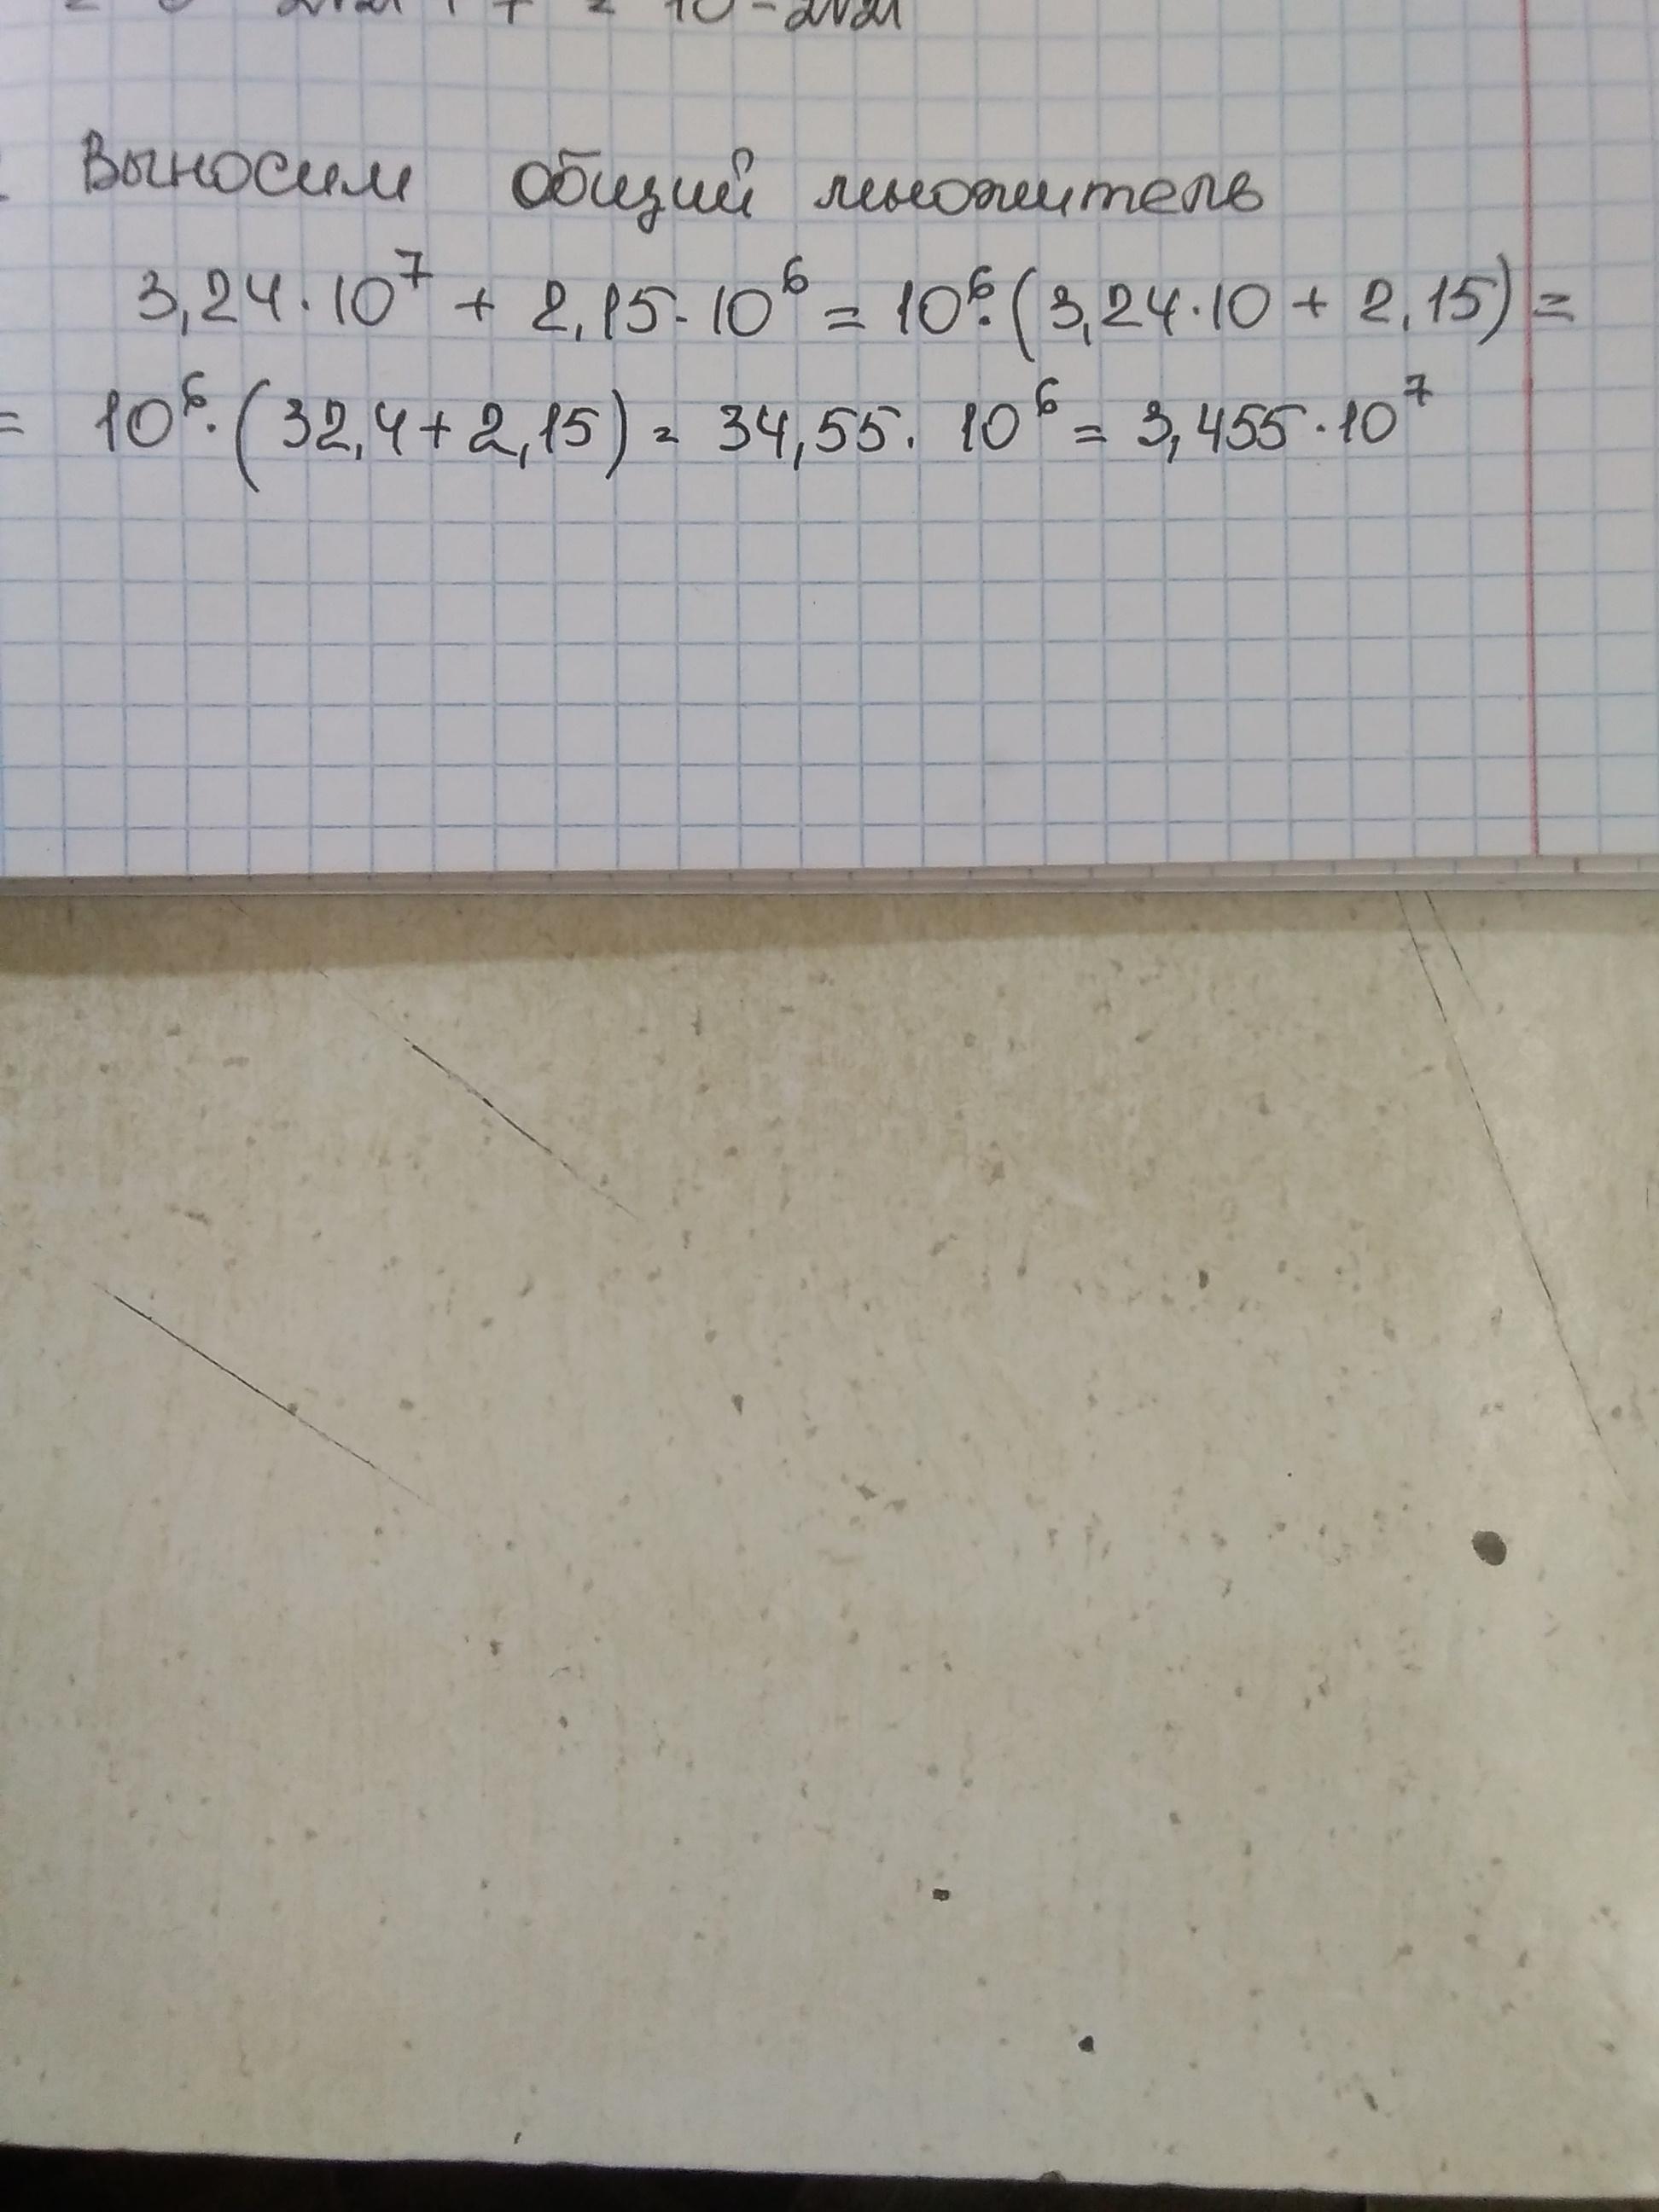 Выносим общий множитель
3,24·10⁷ + 2,15·10⁶ = 10⁶·(3,24·10 + 2,15) =
= 10⁶·(32,4+2,15) = 34,55·10⁶ = 3,455·10⁷